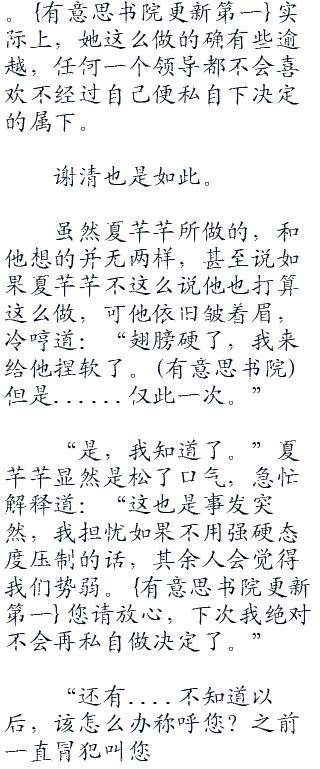 。{有意思书院更新第一}实
际上，她这么做的确有些逾
越，任何一个领导都不会喜
欢不经过自己便私自下决定
的属下。
谢清也是如此。
虽然夏芊芊所做的，和
他想的并无两样，甚至说如
果夏芊芊不这么说他也打算
这么做，可他依旧皱着眉，
冷哼道：“翅膀硬了，我来
给他捏软了。(有意思书院)
但是......仅此一次。”
“是，我知道了。”夏
芊芊显然是松了口气，急忙
解释道：“这也是事发突
然，我担忧如果不用强硬态
度压制的话，其余人会觉得
我们势弱。{有意思书院更新
第一}您请放心，下次我绝对
不会再私自做决定了。”
“还有....不知道以
后，该怎么办称呼您？之前
一直冒犯叫您